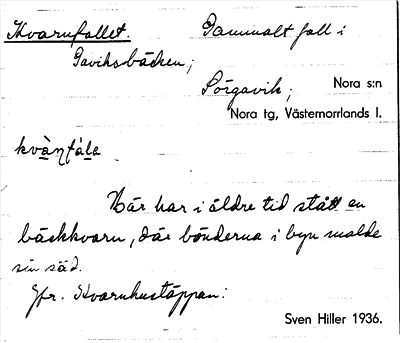 Kvarnfallet. Gammalt fall i
Gaviksbäcken;
Sörgavik; Nora s:n
Nora tg, Västernorrlands l.
kvà̱ṉfà̱ḻe̱
Här har i äldre tid stått en
bäckkvarn, där bönderna i byn malde
sin säd.
Jfr. Kvarnhustäppan:
Sven Hiller 1936.